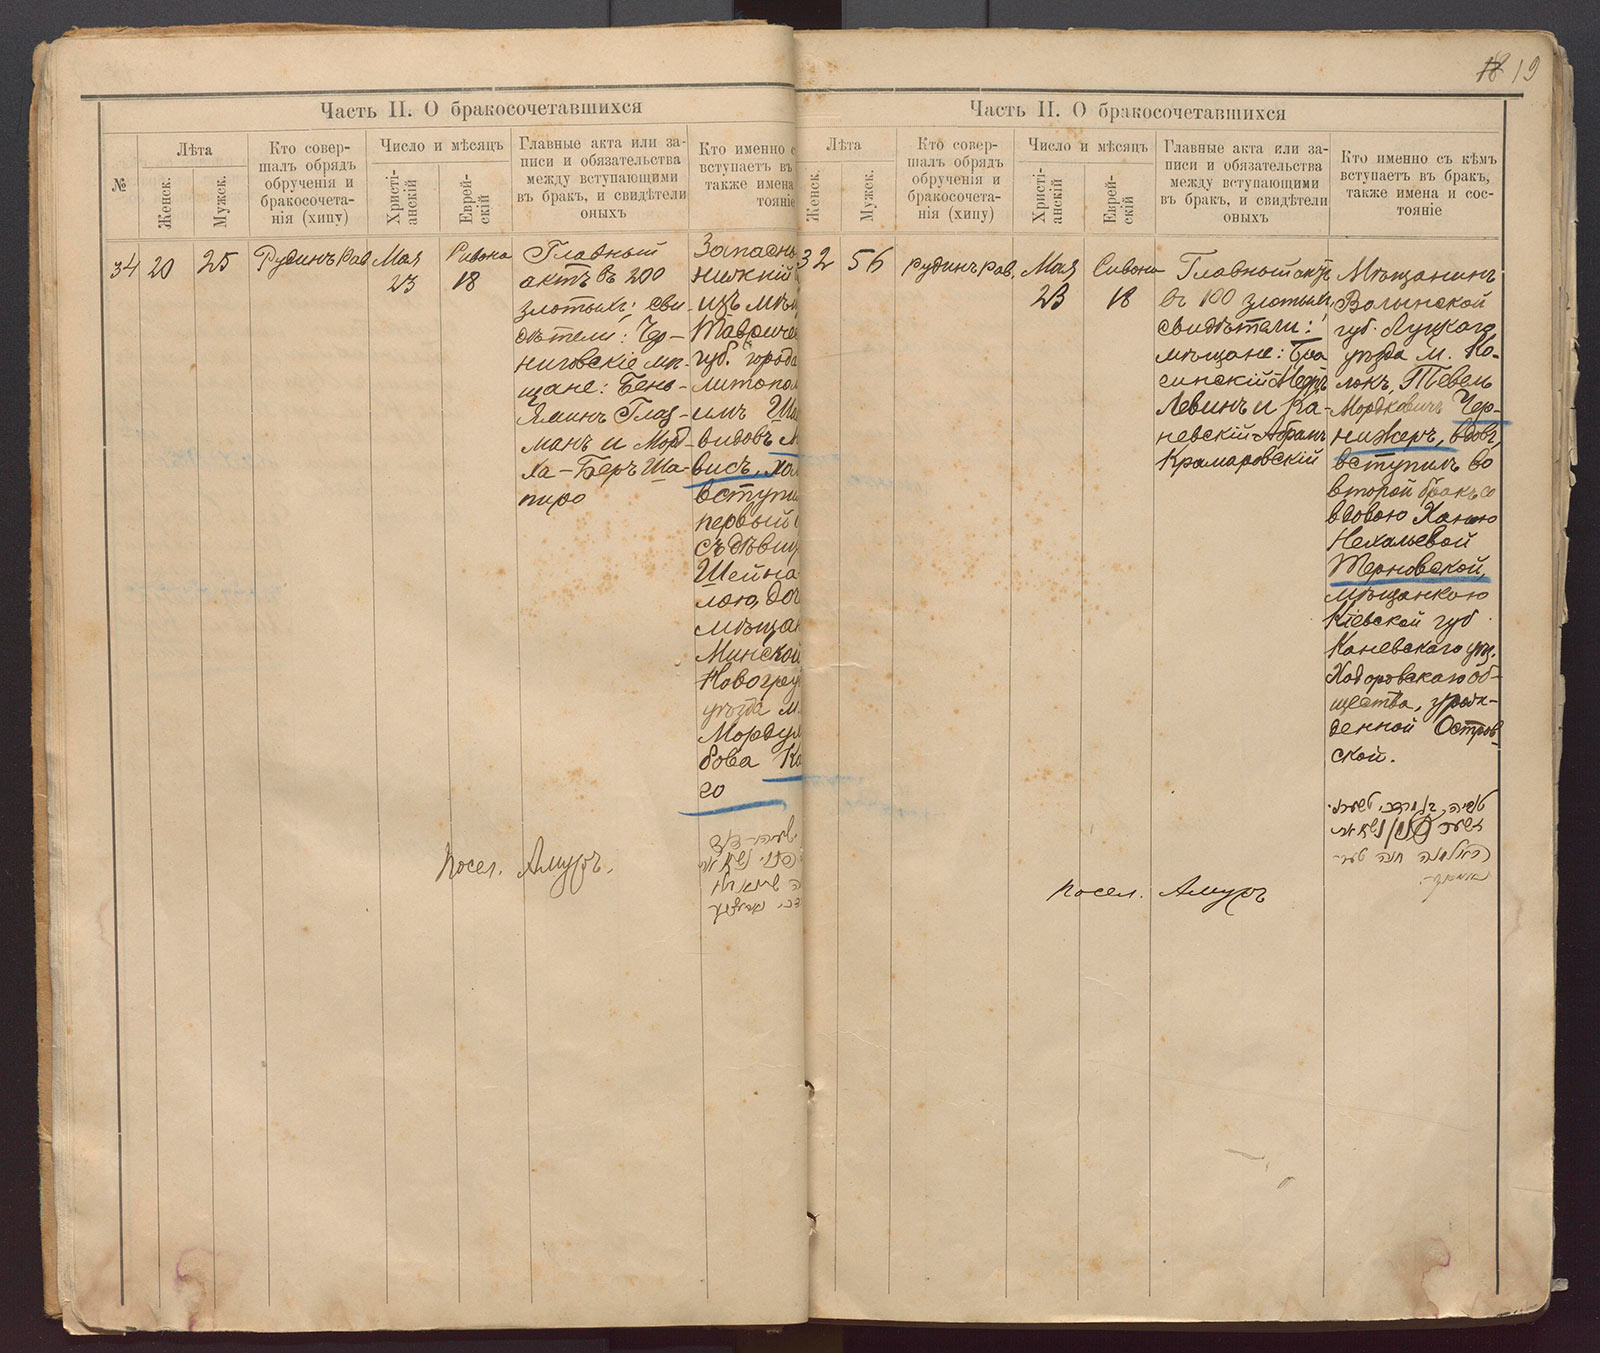 18 19
Часть II. О бракосочетавшихся
№
Лѣта
Женск.
Мужск.
Кто совер-
шалъ обрядъ
обрученія и
бракосочета-
нія (хипу)
Число и мѣсяцъ
Христі-
анскій
Еврей-
скій
Главные акта или за-
писи и обязательства
между вступающими
въ бракъ, и свидѣтели
оныхъ
Кто именно с
вступаетъ въ
также имена
тояніе
34
20
25
Рудинъ Рав
Мая
23
Сивона
18
Главный
актъ въ 200
злотыхъ; сви-
дѣтели: Чер-
ниговскіе мѣ-
щане: Бень-
Яминъ Глаз-
манъ и Морд-
ха-Беръ Ша-
пиро
Запасны
нижній
изъ мѣщ
Тавриче
губ. города
литопол
имъ
видовъ
висъ, хол
вступи
первый
съ дѣвиц
Шейна
лою, доч
мѣщан
Минской
Новогруд
уѣзда м.
Мордух
бова Ка
го
Посел. Амуръ.
Часть II. О бракосочетавшихся
Лѣта
Женск.
Мужск.
Кто совер-
шалъ обрядъ
обрученія и
бракосочета-
нія (хипу)
Число и мѣсяцъ
Христі-
анскій
Еврей-
скій
Главные акта или за-
писи и обязательства
между вступающими
въ бракъ, и свидѣтели
оныхъ
Кто именно съ кѣмъ
вступаетъ въ бракъ,
также имена и сос-
тояніе
32
56
Рудинъ Рав.
Мая
23
Сивона
18
Главный актъ
въ 100 злотыхъ,
свидѣтели:
мѣщане:
Левинъ и Ка-
невскій Абрамъ
Крамаровскій
Мѣщанинъ
Волынской
губ. Луцкаго
уѣзда м. Ко-
локъ, Тевель
Мордковичъ Чер-
нижеръ, вдовц,
вступилъ во
второй бракъ со
вдовою Ханою
Нехамьевой
Терновской,
мѣщанкою
Кіевской губ.
Каневскаго уѣз.
Ходоровскаго об-
щества, урож-
денной Остров-
ской.
Посел. Амуръ